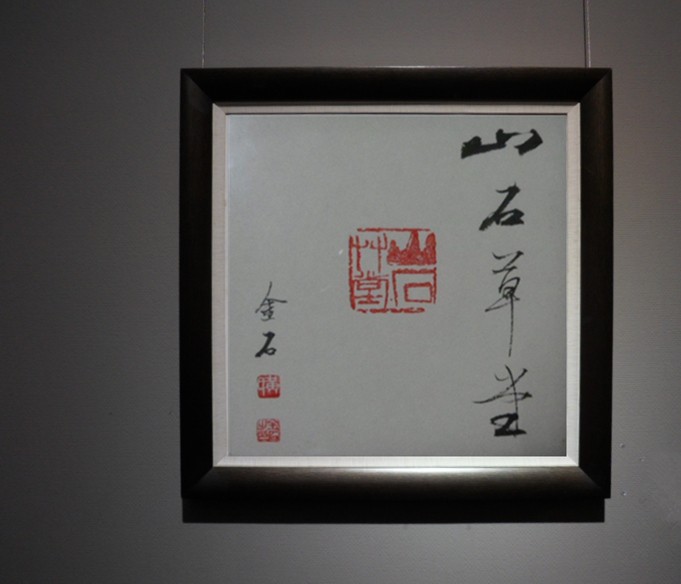 山石草堂
山石艸堂
金石